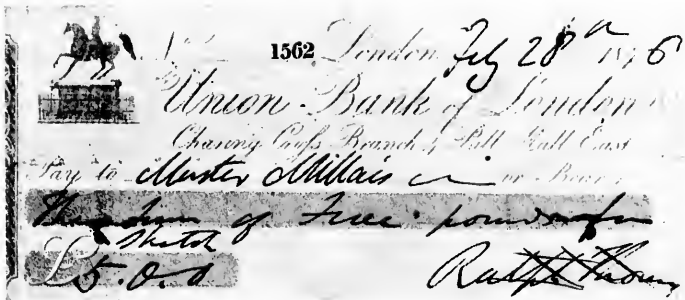 No 1562 London Feby 28th 1876
Union Bank of London
Charing Cross Branch, Pall Mall East
Pay to Master Millais or Bearer
the Sum of Five pounds for
Sketch
£5.0.0 Ralph Thomas